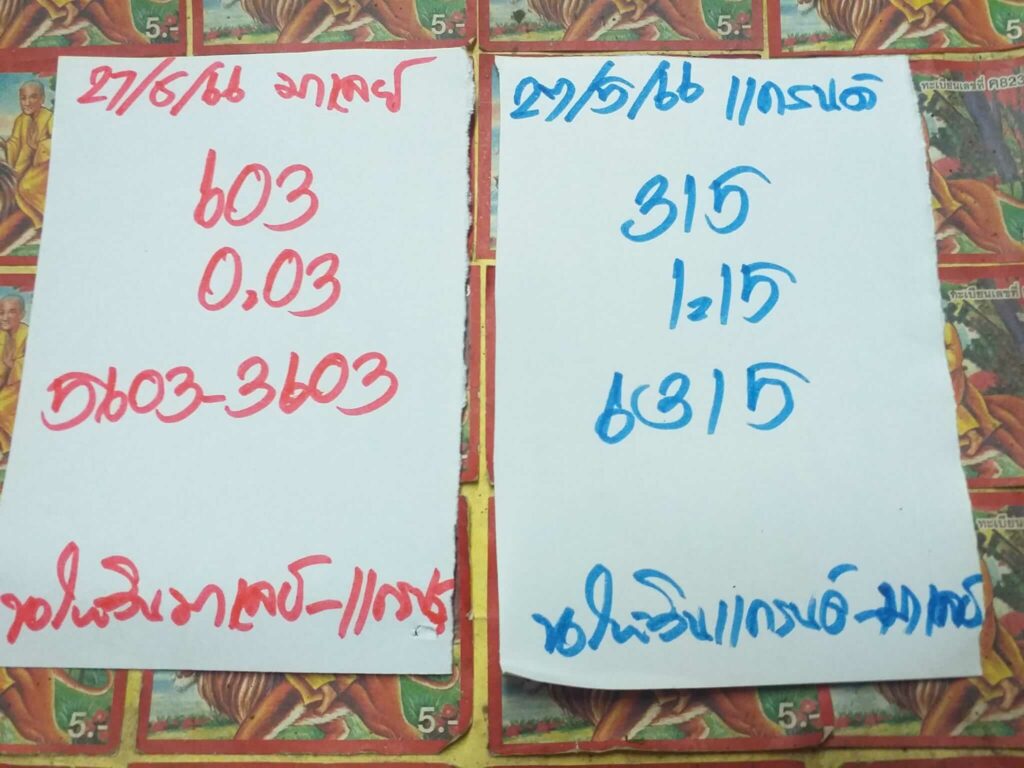 27/5/66 มาเลย์
603
0.03
5603-3603
ขอให้วินมาเลย์-แกรนด์
27/5/66 แกรนด์
315
1.15
6315
ขอให้วินแกรนด์-มาเลย์
5.-
5.-
5.-
5.-
ทะเบียนเลขที่ ค823
ทะเบียนเลขที่
ทะเบีย
5.-
5.-
5.-